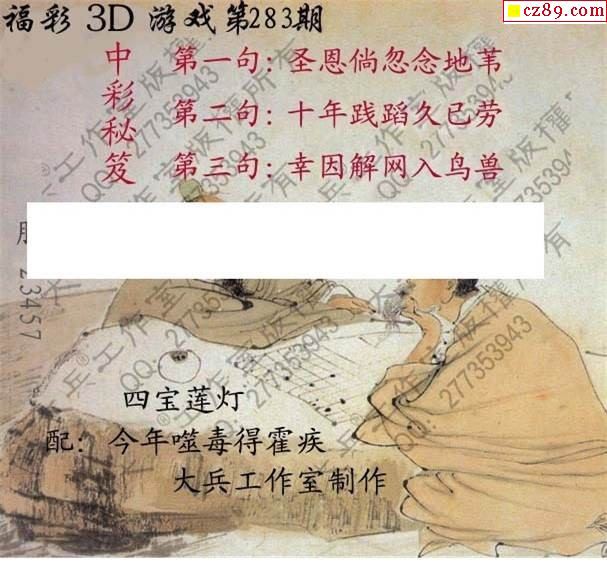 福彩 3D 游戏 第283期
cz89.com
中彩秘笈
第一句：圣恩倘忽念地苇
第二句：十年践蹈久已劳
第三句：幸因解网入鸟兽
23457
四宝莲灯
配：今年噬毒得霍疾
大兵工作室制作
大兵®工作室版权所有
QQ：277353943